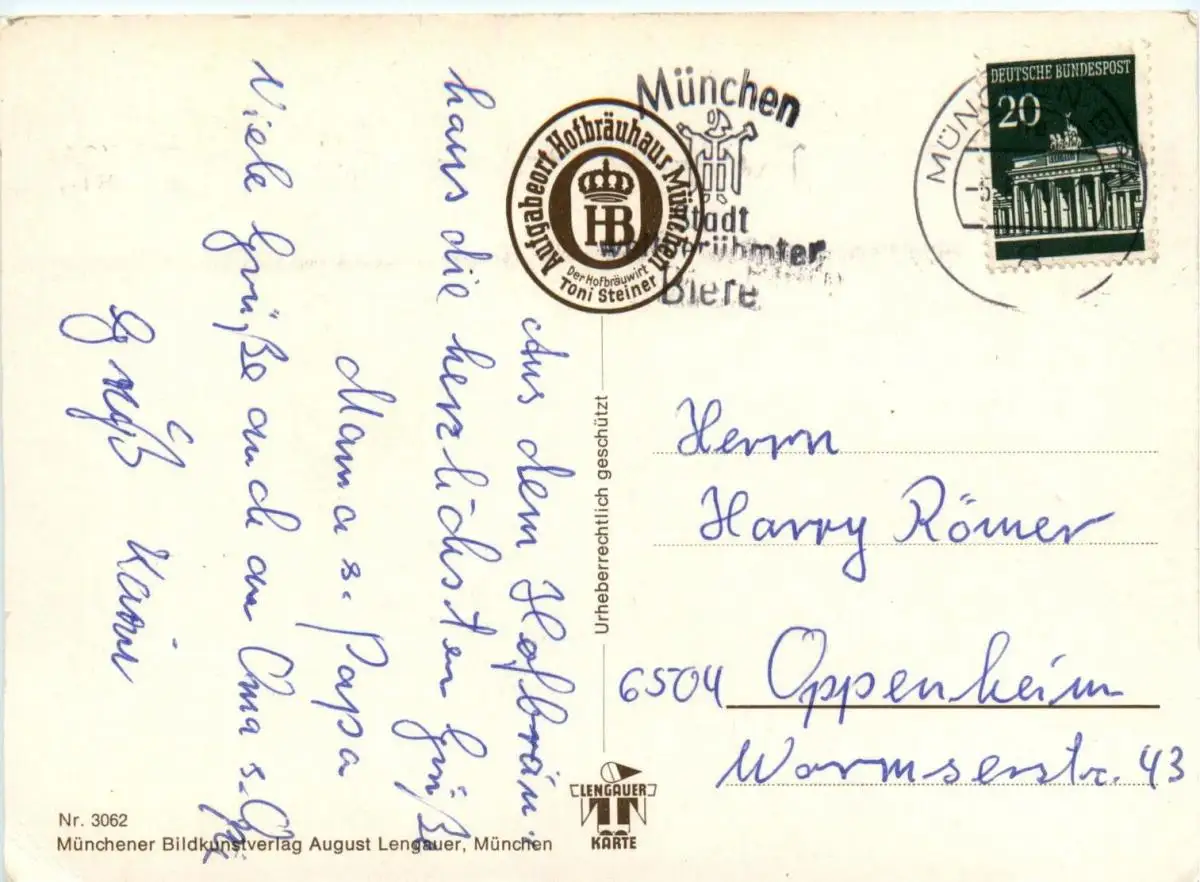 Aus dem Hofbräu-
haus die herzlichsten Grüße
Mama u. Papa
Viele Grüße auch an Oma u. Opi
Gruß
Aufgabeort Hofbräuhaus München
HB
Der Hofbräuwirt
Toni Steiner
München
Stadt
weltberühmter
Biere
MÜNCHEN
DEUTSCHE BUNDESPOST
20
Urheberrechtlich geschützt
Herrn
Harry Römer
6504 Oppenheim
Wormserstr. 43
LENGAUER
KARTE
Nr. 3062
Münchener Bildkunstverlag August Lengauer, München